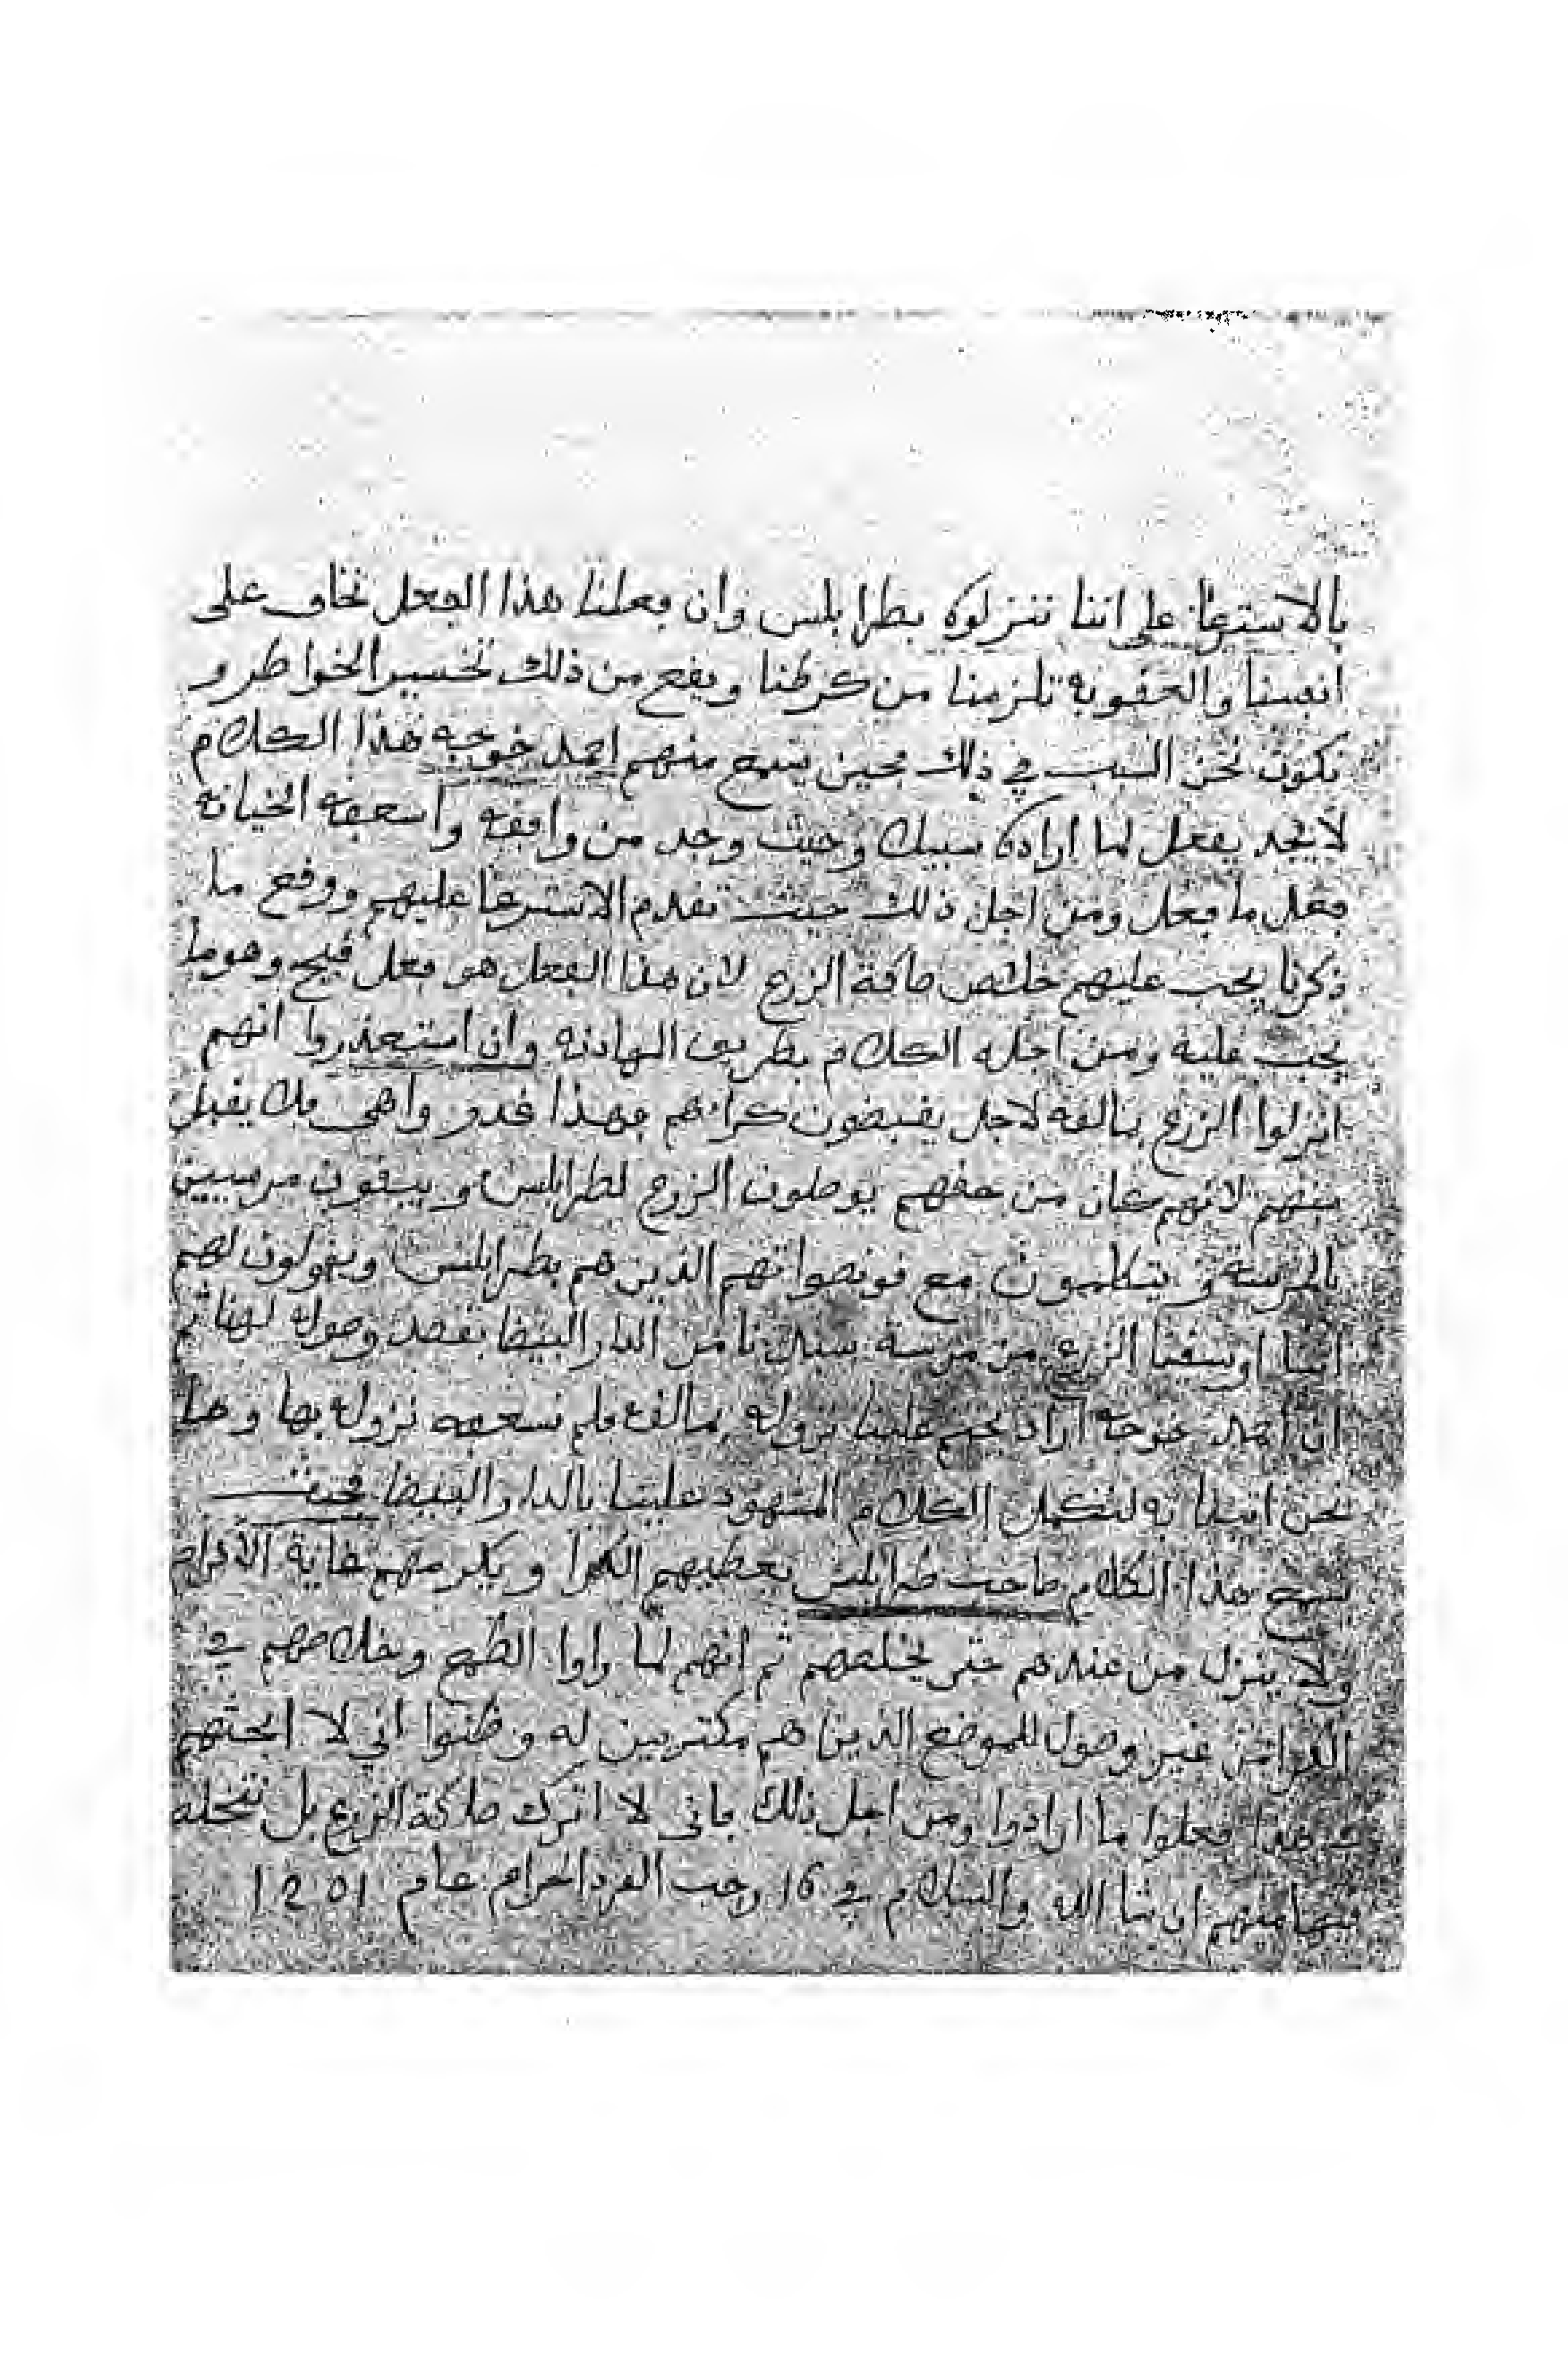 بالاسترعا على اننا ننزلوه بطرابلس وان فعلنا هذا الفعل نخاف على
انفسنا والعقوبة تلزمنا من كرطنا ويقع من ذلك تخسير الخواطر و
نكون نحن السبب في ذلك فحين يسمع منهم احمد خوجه هذا الكلام
لا يجد يفعل لما اراده سبيلا وحيث وجد من وافقه واسعفه الخيانه
فعل ما فعل ومن اجل ذلك حيث تقدم الاسترعا عليهم ووقع ما
ذكرنا يجب عليهم خلاص صاكة الزرع لان هذا الفعل هو فعل قبيح وهو مما
يجب عليه ومن اجله الكلام بطريق المهادنه وان استعذروا انهم
انزلوا الزرع بمالقه لاجل يقبضون كراءهم فهذا غدر واهي فلا يقبل
منهم لانهم كان من حقهم يوصلون الزرع لطرابلس ويبقون مرسيين
بالمرسة ويتكلمون مع قونصواتهم الذين هم بطرابلس ويقولون لهم
اننا اوسقنا الزرع من مرسة سيدنا من الدار البيضا بقصد وصوله لهنا ثم
ان احمد خوجه اراد يحتم علينا نزوله بمالقه فلم نسعفه نزوله بها وها
نحن اتينا به لنكمل الكلام المشهود علينا بالدار البيضا فحيث
يسمع هذا الكلام صاحب طرابلس يعطيهم الكرا ويكرمهم غاية الاكرام
ولا ينزل من عندهم حتى يخلصهم ثم انهم لما راوا الطمع وخلاصهم في
الكرا من غير وصول للموضع الذين هم مكتريين له وظنوا اني لا ابحثهم
في هذا فعلوا ما ارادوا ومن اجل ذلك فاني لا اترك صاكة الزرع بل
فيها منهم ان شا الله والسلام في 16 رجب الفرد الحرام عام 1201